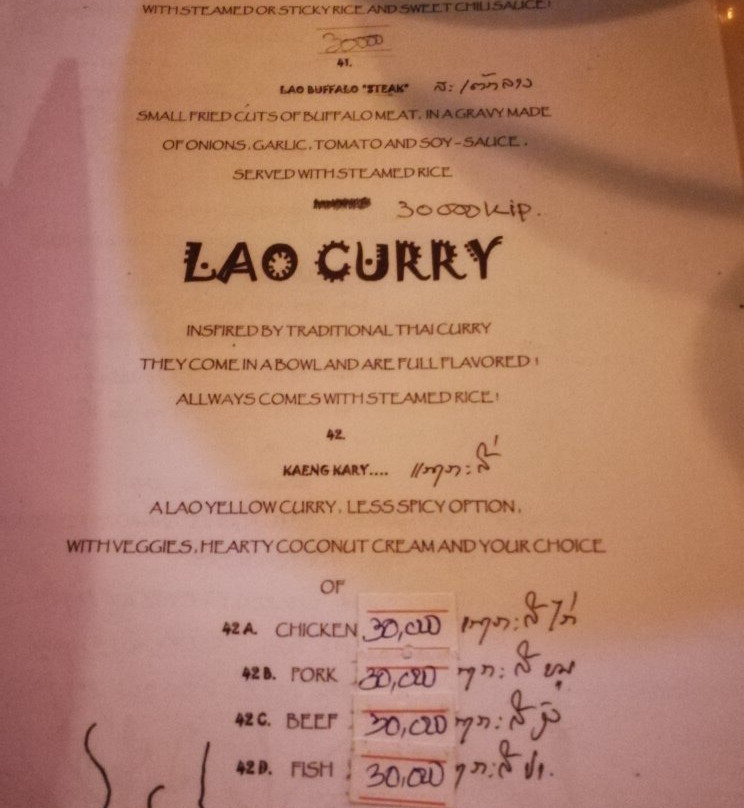 WITH STEAMED OR STICKY RICE AND SWEET CHILI SAUCE!
30000
41.
LAO BUFFALO "STEAK"
SMALL FRIED CUTS OF BUFFALO MEAT, IN A GRAVY MADE
OF ONIONS, GARLIC, TOMATO AND SOY-SAUCE,
SERVED WITH STEAMED RICE
30000 Kip.
LAO CURRY
INSPIRED BY TRADITIONAL THAI CURRY
THEY COME IN A BOWL AND ARE FULL FLAVORED!
ALLWAYS COMES WITH STEAMED RICE!
42.
KAENG KARY....
A LAO YELLOW CURRY, LESS SPICY OPTION,
WITH VEGGIES, HEARTY COCONUT CREAM AND YOUR CHOICE
OF
42A. CHICKEN 30,000
42B. PORK 30,000
42C. BEEF 30,000
42D. FISH 30,000